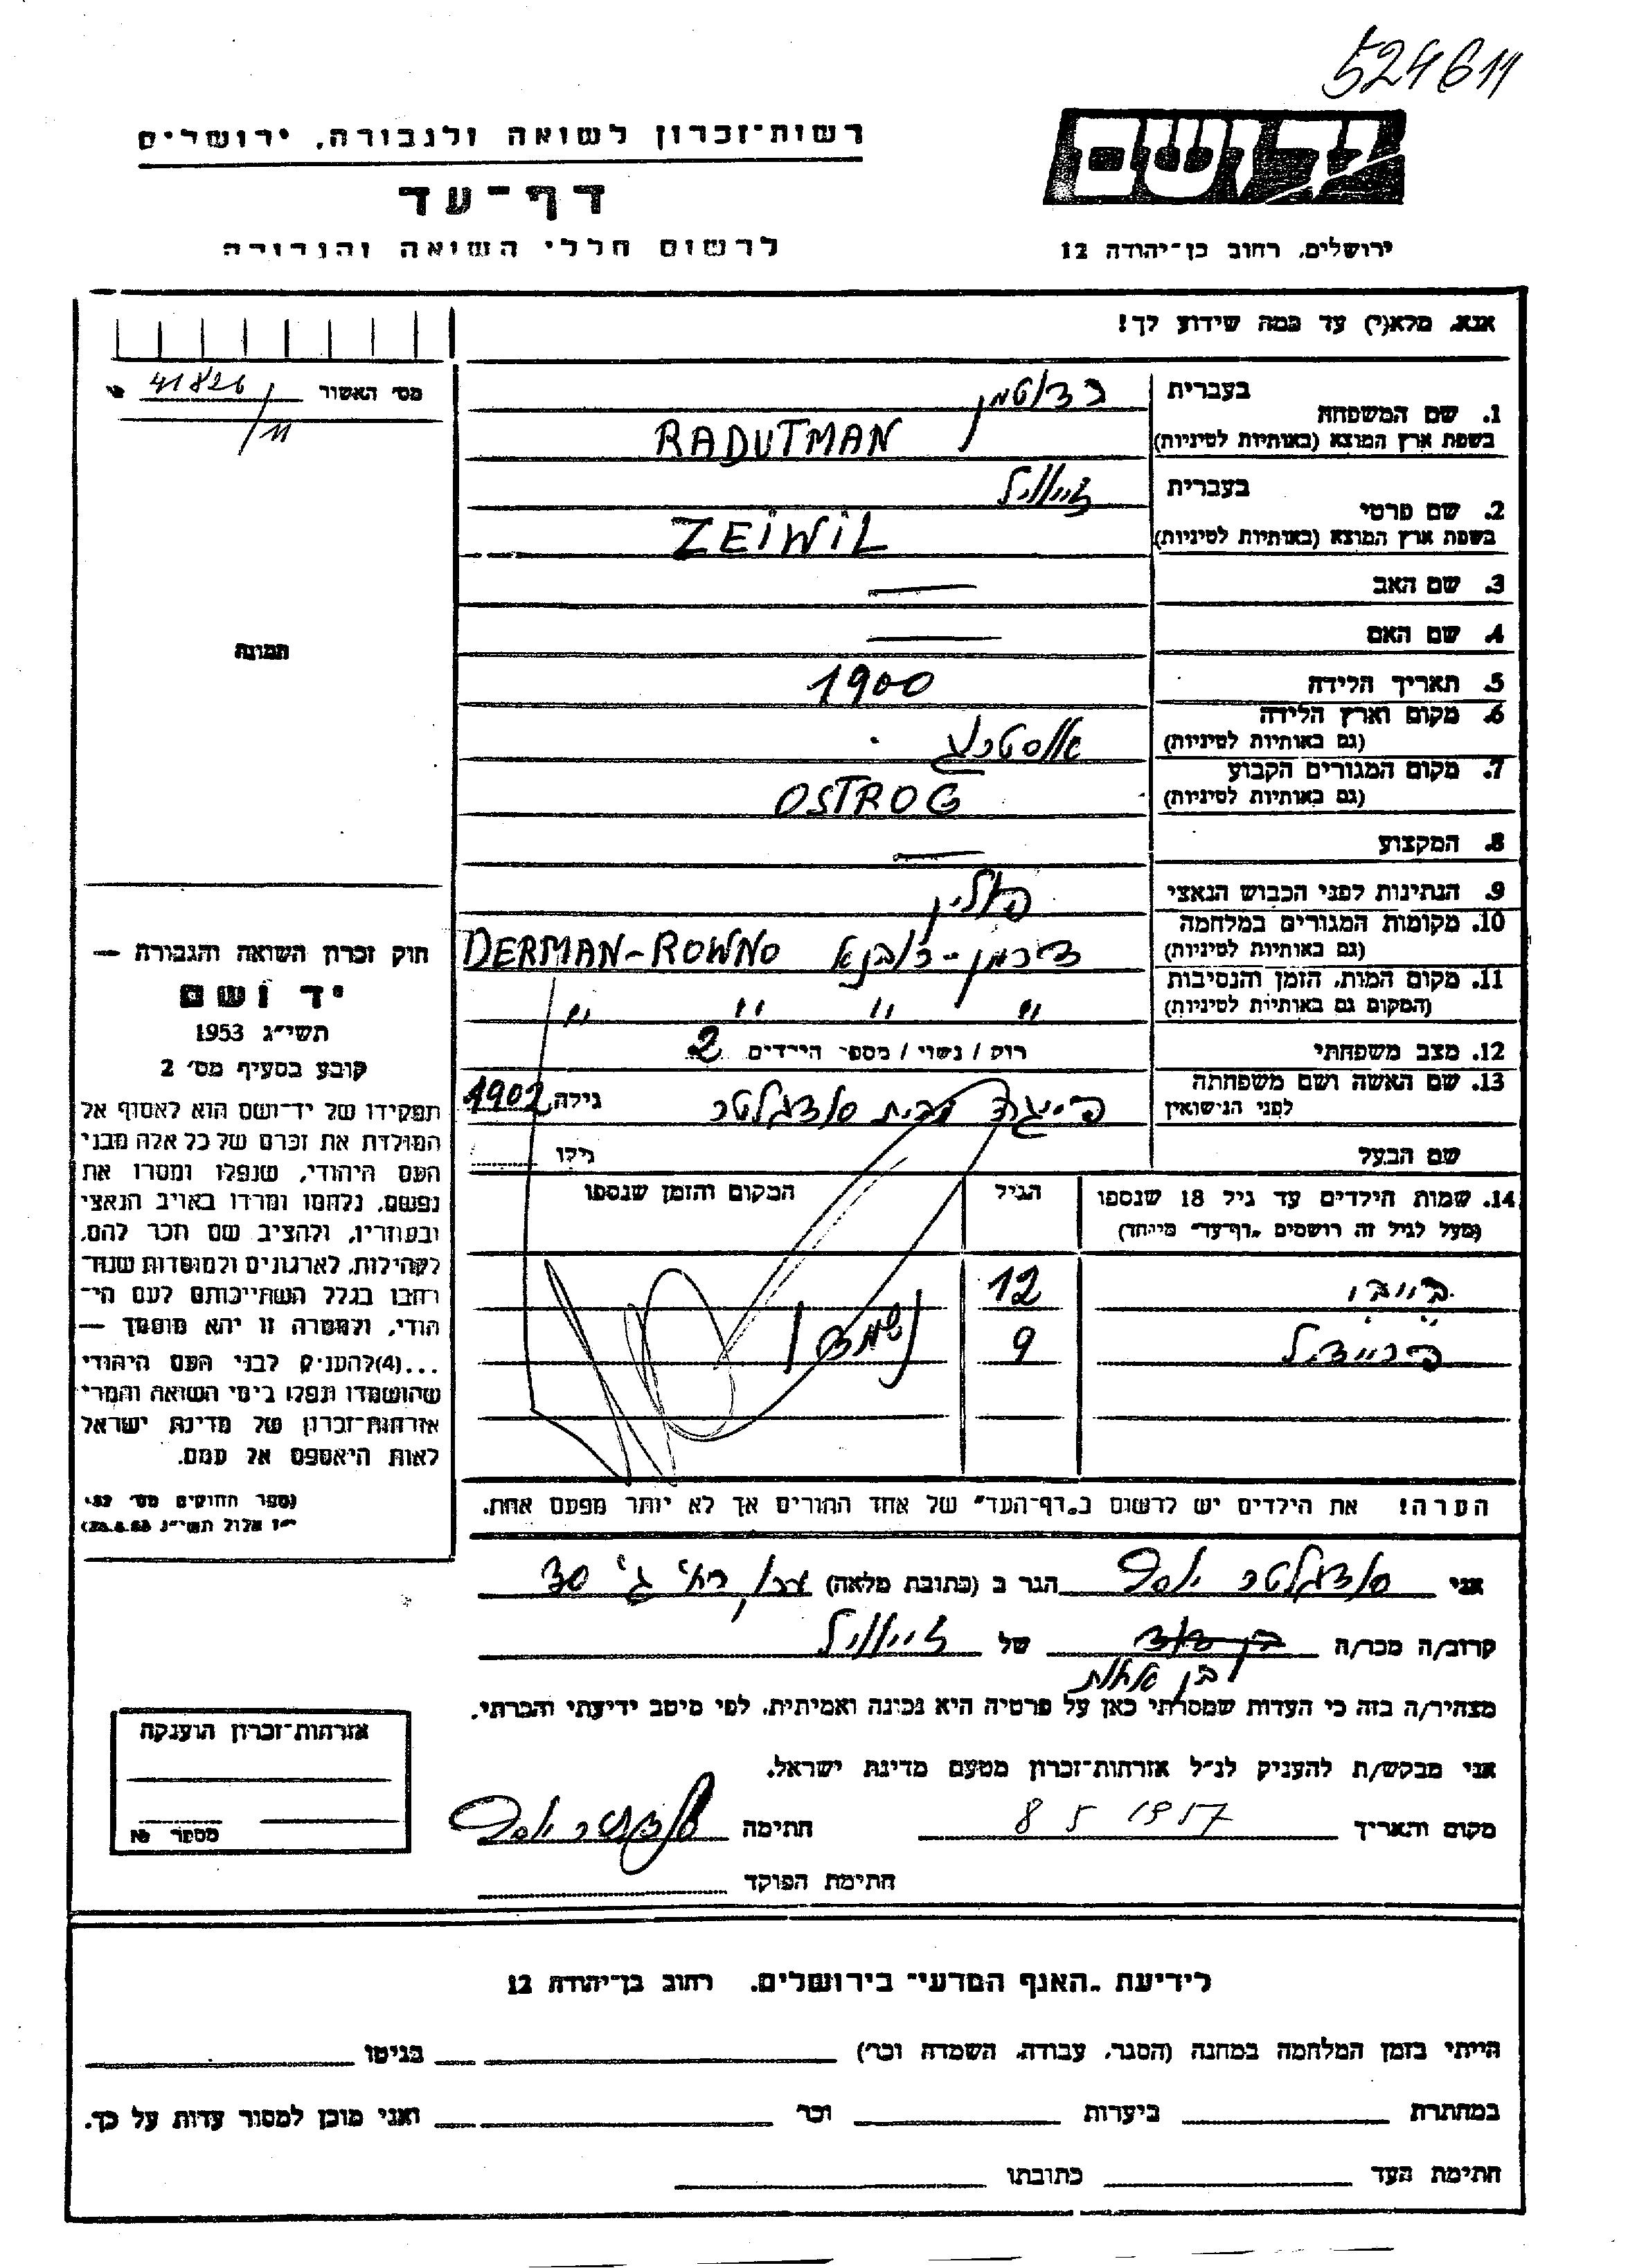 524611
יד ושם
רשות־זכרון לשואה ולגבורה, ירושלים
דף־עד
לרשום חללי השואה והגבורה
ירושלים, רחוב בן־יהודה 12
אנא, מלא(י) עד כמה שידוע לך!
מס׳ האשור 41826/11
1. שם המשפחה בעברית רדוטמן
בשפת ארץ המוצא (באותיות לטיניות) RADUTMAN
2. שם פרטי בעברית זייוויל
בשפת ארץ המוצא (באותיות לטיניות) ZEIWIL
3. שם האב —
4. שם האם —
תמונה
5. תאריך הלידה 1900
6. מקום וארץ הלידה (גם באותיות לטיניות)
7. מקום המגורים הקבוע (גם באותיות לטיניות) OSTROG
8. המקצוע —
9. הנתינות לפני הכבוש הנאצי פולין
10. מקומות המגורים במלחמה (גם באותיות לטיניות) דרמן־רובנא DERMAN-ROWNO
11. מקום המות, הזמן והנסיבות (המקום גם באותיות לטיניות) " " " "
12. מצב משפחתי רוק / נשוי / מספר הילדים 2
13. שם האשה ושם משפחתה לפני הנישואין בית סודגלטר גילה 1902
שם הבעל גילו
14. שמות הילדים עד גיל 18 שנספו הגיל המקום והזמן שנספו
(מעל לגיל זה רושמים „דף־עד” מיוחד)
12
פריידיל 9
הערה! את הילדים יש לרשום ב„דף־העד” של אחד ההורים אך לא יותר מפעם אחת.
חוק זכרון השואה והגבורה —
יד ושם
תשי״ג 1953
קובע בסעיף מס׳ 2
תפקידו של יד־ושם הוא לאסוף אל
המולדת את זכרם של כל אלה מבני
העם היהודי, שנפלו ומסרו את
נפשם, נלחמו ומרדו באויב הנאצי
ובעוזריו, ולהציב שם וזכר להם,
לקהילות, לארגונים ולמוסדות שנח־
רבו בגלל השתייכותם לעם הי־
הודי, ולמטרה זו יהא מוסמך —
...(4) להעניק לבני העם היהודי
שהושמדו ונפלו בימי השואה והמרי
אזרחות־זכרון של מדינת ישראל
לאות היאספם אל עמם.
(ספר החוקים מס׳ 132,
י״ז אלול תשי״ג 28.8.53)
אני סודגלטר יוסף הגר ב (כתובת מלאה) ג׳ 30
קרוב/ה מכר/ה בן דוד של זייוויל
בן אחות
מצהיר/ה בזה כי העדות שמסרתי כאן על פרטיה היא נכונה ואמיתית, לפי מיטב ידיעתי והכרתי.
אני מבקש/ת להעניק לנ״ל אזרחות־זכרון מטעם מדינת ישראל.
מקום ותאריך 8 5 1957 חתימה סודגלטר יוסף
חתימת הפוקד
אזרחות־זכרון הוענקה
מספר №
לידיעת „האגף המדעי” בירושלים, רחוב בן־יהודה 12
הייתי בזמן המלחמה במחנה (הסגר, עבודה, השמדה וכו׳) בגיטו
במחתרת ביערות וכו׳ ואני מוכן למסור עדות על כך.
חתימת העד כתובתו